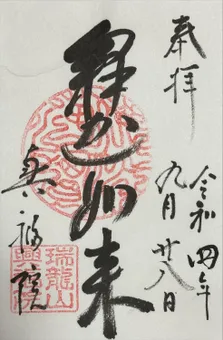 奉拝
令和四年
九月廿八日
釋迦如来
興福院
瑞龍山